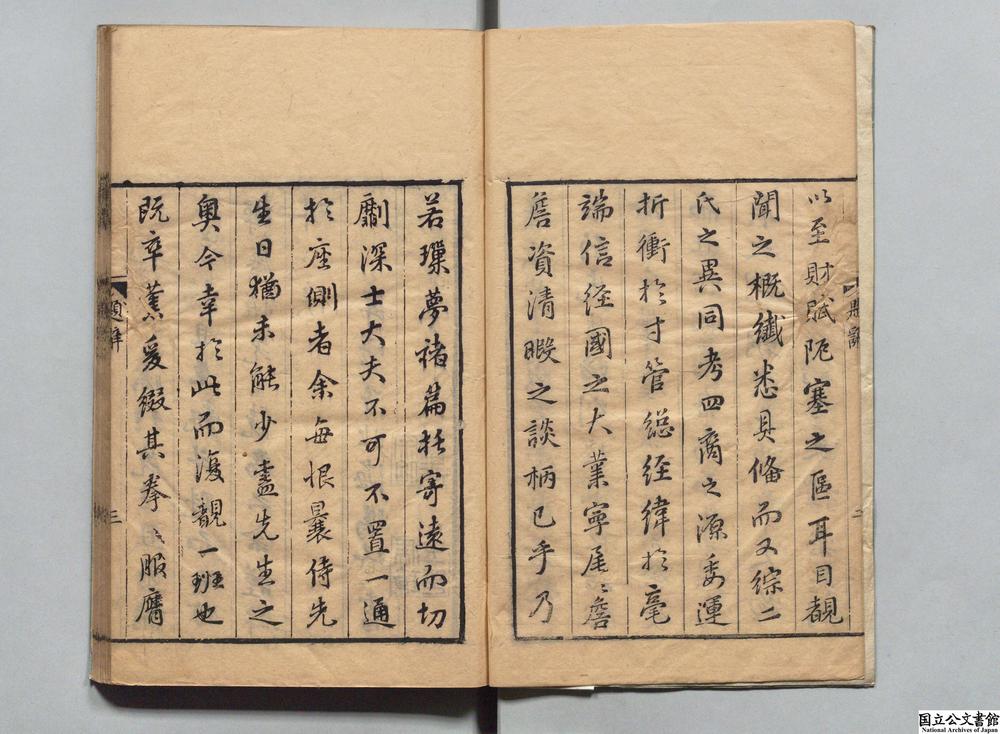 以至財賦阨塞之區耳目覩
聞之概纖悉具俻而又綜二
氏之異同考四裔之源委運
折衝於寸管總經緯於毫
端信經國之大業寧尾〻
詹資清暇之談柄已乎乃
若瓌夢褚篇托寄遠而切
劘深士大夫不可不置一通
於座側者余每恨曩侍先
生日猶未能少盡先生之
奥今幸於此而復覩一班也
既卒業爰綴其拳〻服膺
題辭
二
題辭
三
国立公文書館
National Archives of Japan